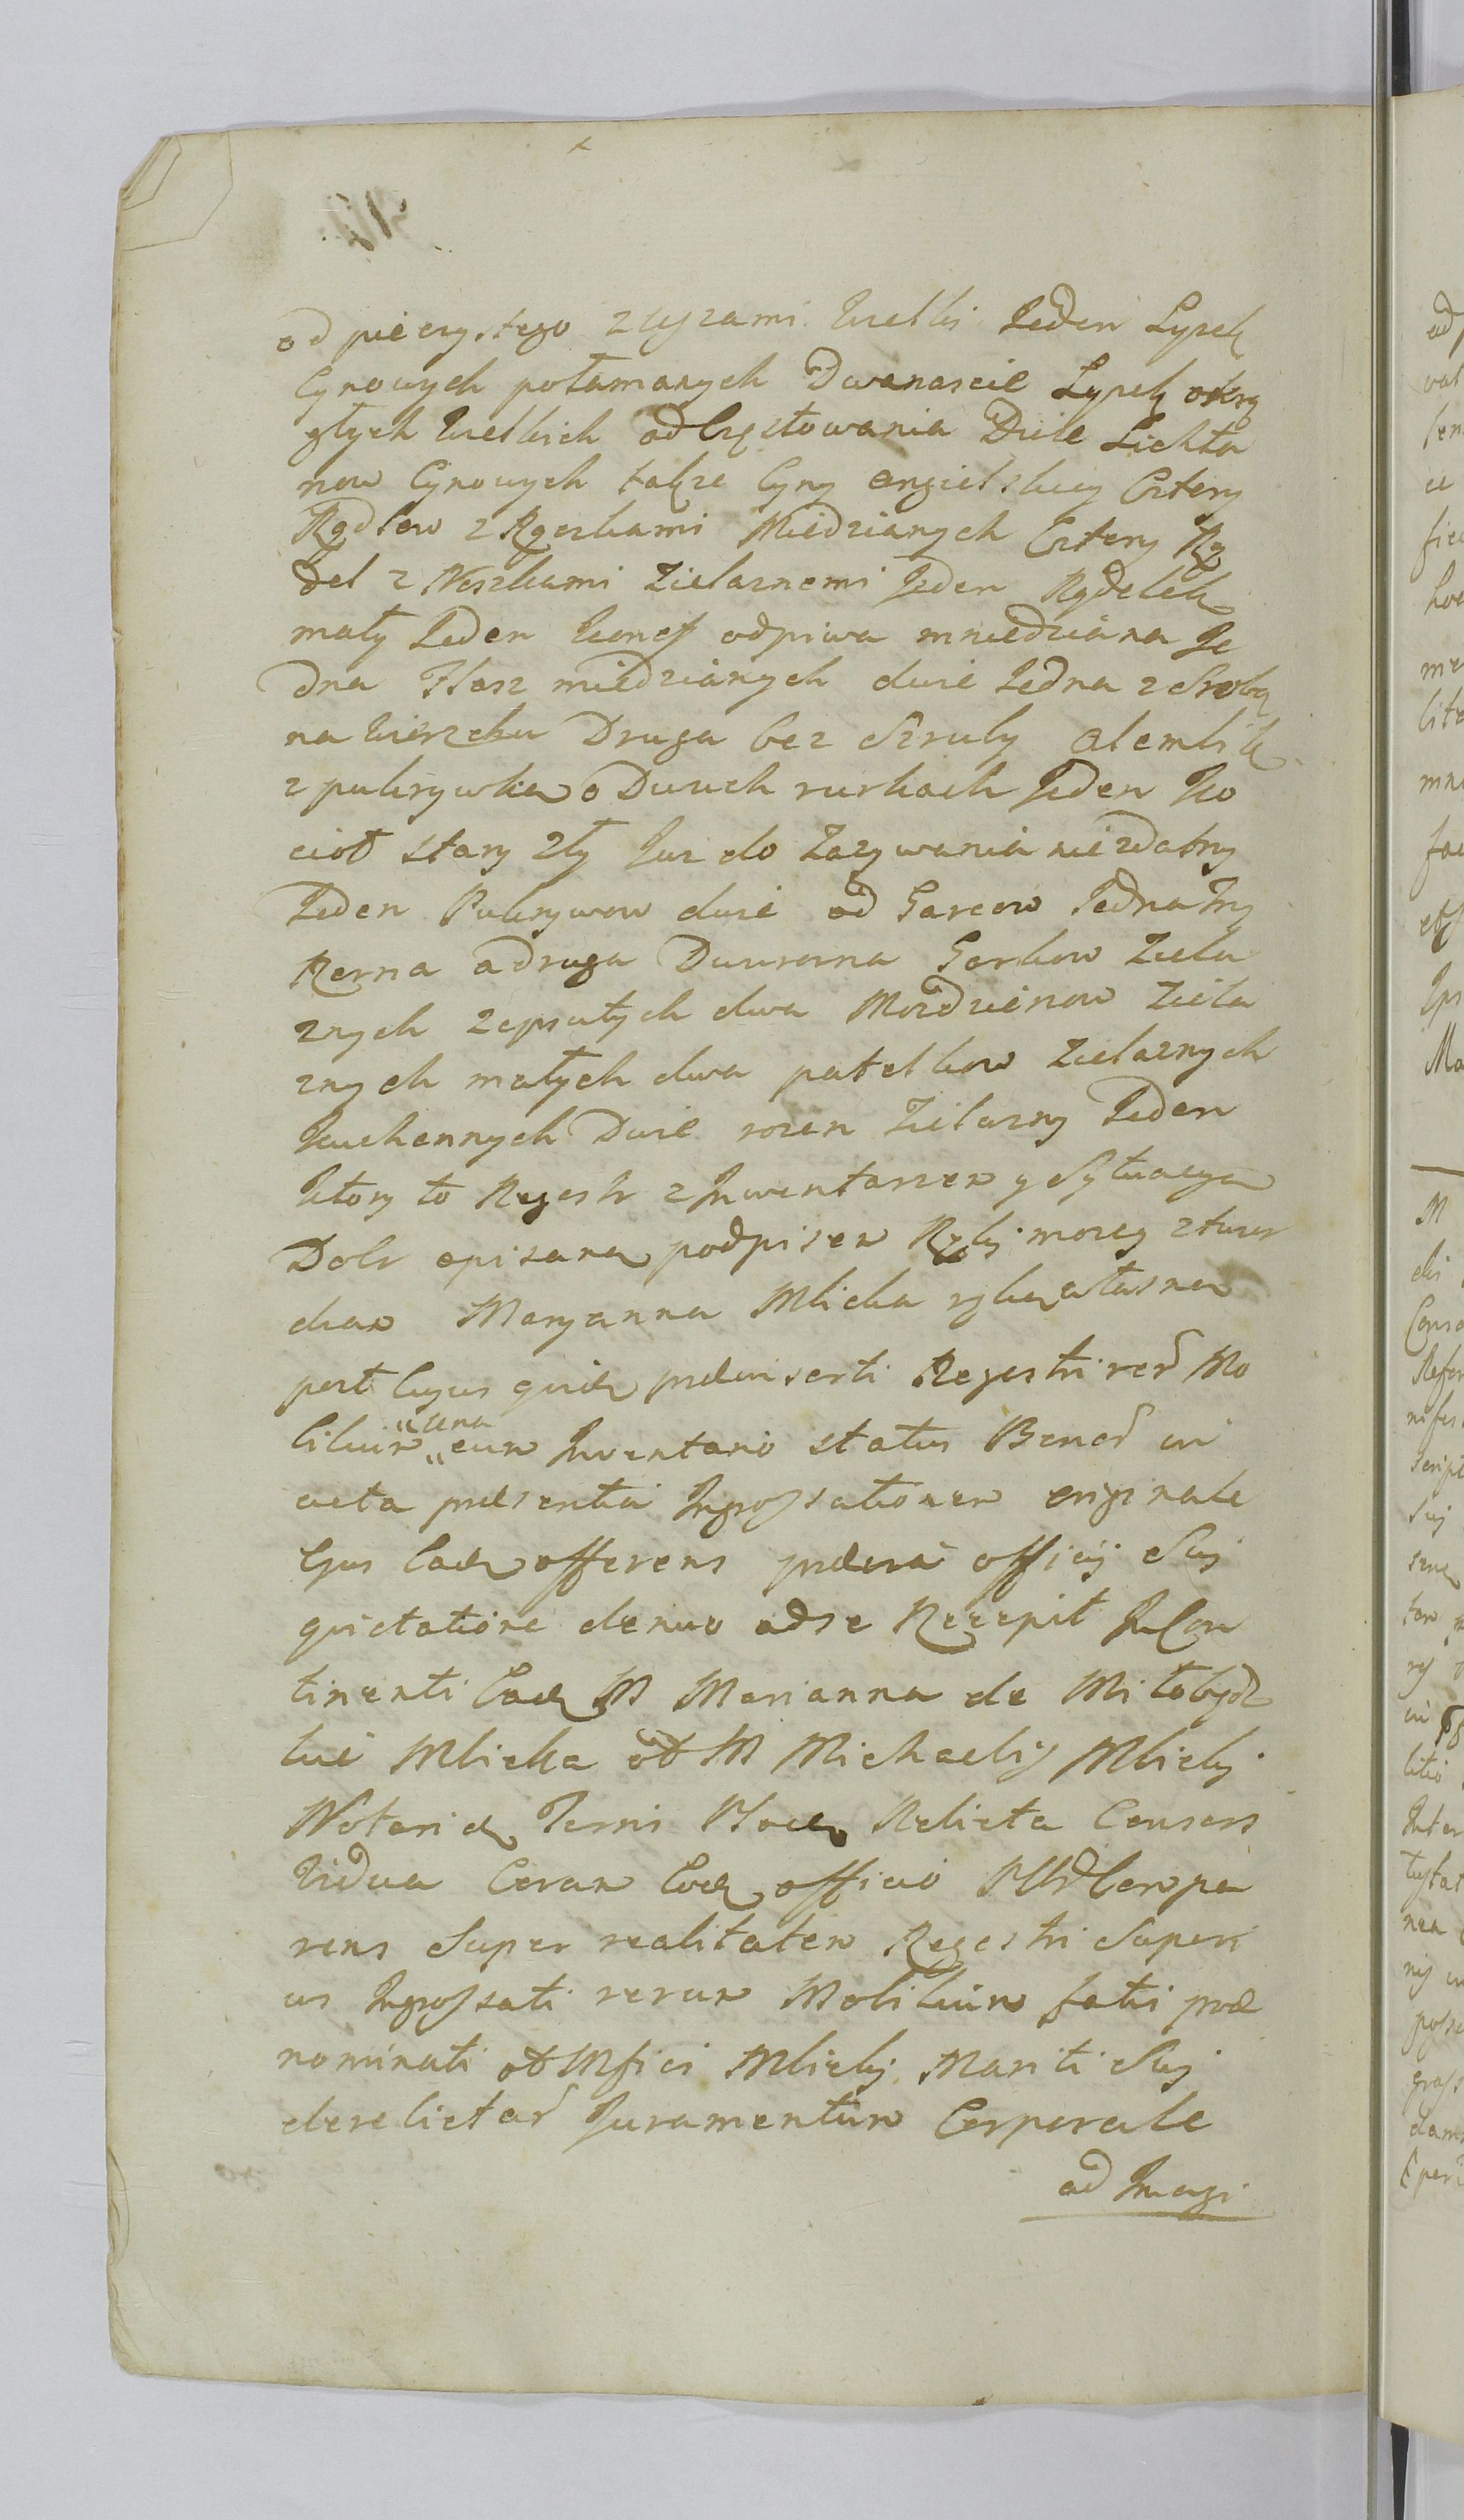 od pieczystego z uszami Wielki Jeden Łyżek
Cynowych połamanych Dwanascie Łyżek okrą
głych Wielkich od Częstowania Dwie Lichta
row Cynowych także Cyny angielskiey Cztery
Rądlow z Rączkami Miedzianych Cztery Rą
del z Noszkami Zielaznemi Jeden Rądelek
mały Jeden Konef od piwa mniedziana Je
dna Flasz miedzianych dwie Jedna z Srobą
na Wierzchu Druga bez Szruby Alembik
z pukrywką o Dwuch rurkach Jeden Ko
cioł stary zły Juz do Zazywania niezdatny
Jeden Pukrywow dwie od Garcow Jedna Trz
Rzerna a druga Dwurerna Garkow Ziela
znych zepsutych dwa Mozdzierzow Ziela
znych małych dwa patelkow Zielaznych
Kuchennych Dwie rozen Zielazny Jeden
Ktory to Regestr z Inwentarzem y Sytuacyą
Dobr opisaną podpisem Ręki moiey ztwier
dzam Maryanna Mlicka ręką własną
post Cujus quid praeinserti Regestri rerum Mo
bilium una cum Inventario status Bonorum in
acta praesentia Ingrossationem originale
Ejus eadem offerens praevia officij Sui
quietatione denuo ad se Recepit In Con
tinenti eadem M Marianna de Mi
kie Mlicka olim M Michaelis Mlicki
Notarij Terris Relicta Consors
Vidua Coram eodem officio Compa
rens Super realitatem Regestri Superi
us Ingrossati rerum Mobilium fati prae
nominati olim Mfici Mlicki Mariti Sui
derelictarum Juramentum Corporale
ad Imagi